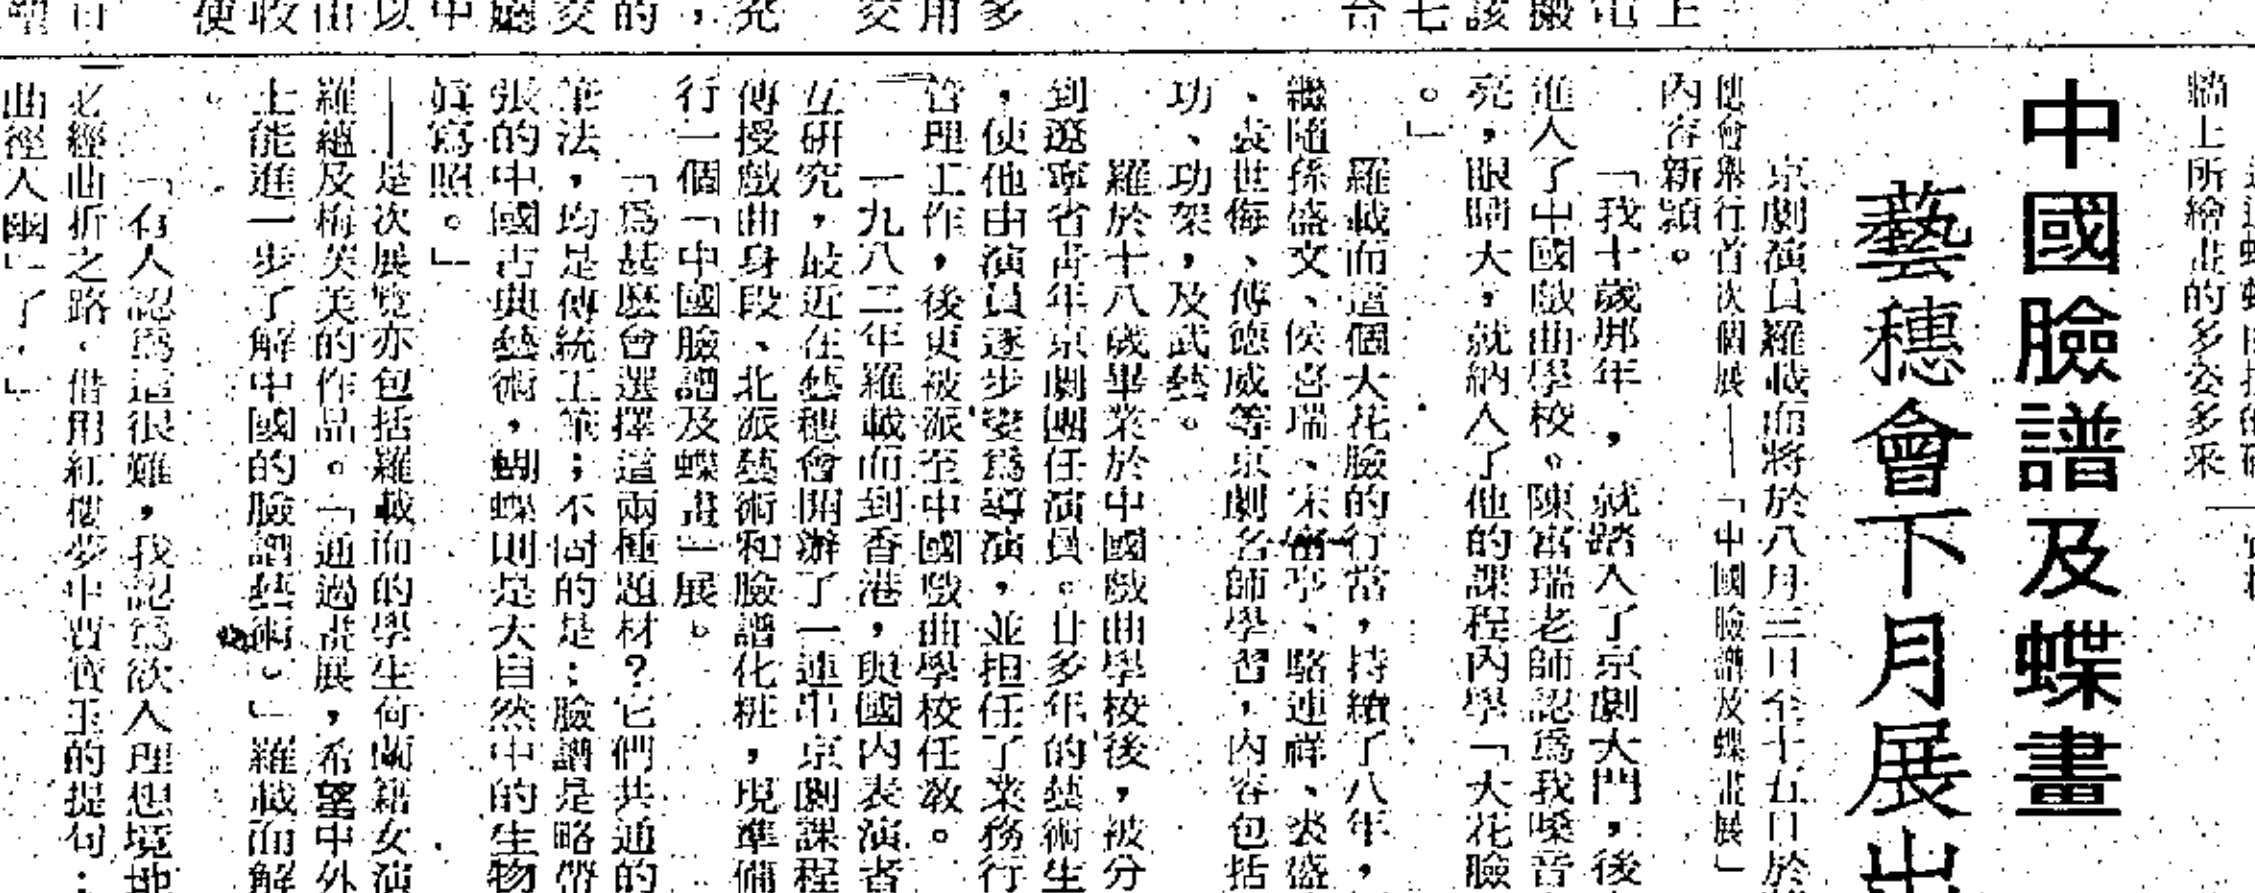 中國臉譜及蝶畫
藝穗會下月展出
京劇演員羅載而將於八月三日至十五日於
穗會舉行首次個展——「中國臉譜及蝶畫展」
內容新穎。
「我十歲那年，就踏入了京劇大門，後
進入了中國戲曲學校。陳富瑞老師認爲我嗓音
亮，眼睛大，就納入了他的課程內學「大花臉
。」
羅載而這個大花臉的行當，持續了八年，
繼隨孫盛文、侯喜瑞、宋富亭、駱連祥、裘盛
、袁世海、傅德威等京劇名師學習，內容包括
功、功架，及武藝。
羅於十八歲畢業於中國戲曲學校後，被分
到遼寧省青年京劇團任演員。廿多年的藝術生
，使他由演員逐步變爲導演，並担任了業務行
管理工作，後更被派至中國戲曲學校任教。
一九八二年羅載而到香港，與國內表演者
互研究，最近在藝穗會開辦了一連串京劇課程
傳授戲曲身段、北派藝術和臉譜化粧，現準備
行一個「中國臉譜及蝶畫」展。
「爲甚麽會選擇這兩種題材？它們共通的
筆法，均是傳統工筆；不同的是：臉譜是略帶
張的中國古典藝術，蝴蝶則是大自然中的生物
眞寫照。」
——是次展覽亦包括羅載而的學生荷蘭籍女演
羅蘊及梅笑美的作品。「通過畫展，希望中外
上能進一步了解中國的臉譜藝術。」羅載而解
。
「有人認爲這很難，我認爲欲入理想境地
必經曲折之路，借用紅樓夢中賈寶玉的提句：
曲徑入幽」了。」
牆上所繪畫的多姿多采